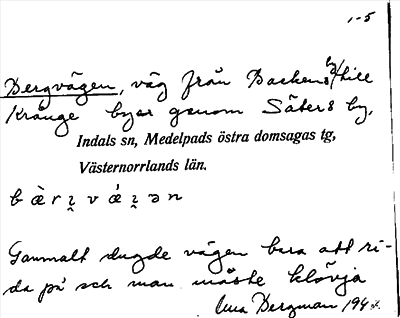 1-5
Bergvägen, väg från Backens by till
Krånge byar genom Säters by,
Indals sn, Medelpads östra domsagas tg,
Västernorrlands län.
Gammalt dugde vägen bara att ri-
da på och man måste klövja
Bergman 194